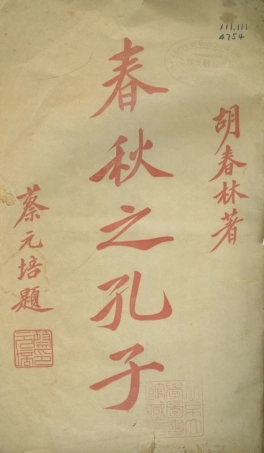 胡春林著
春秋之孔子
蔡元培題
111.111
4754